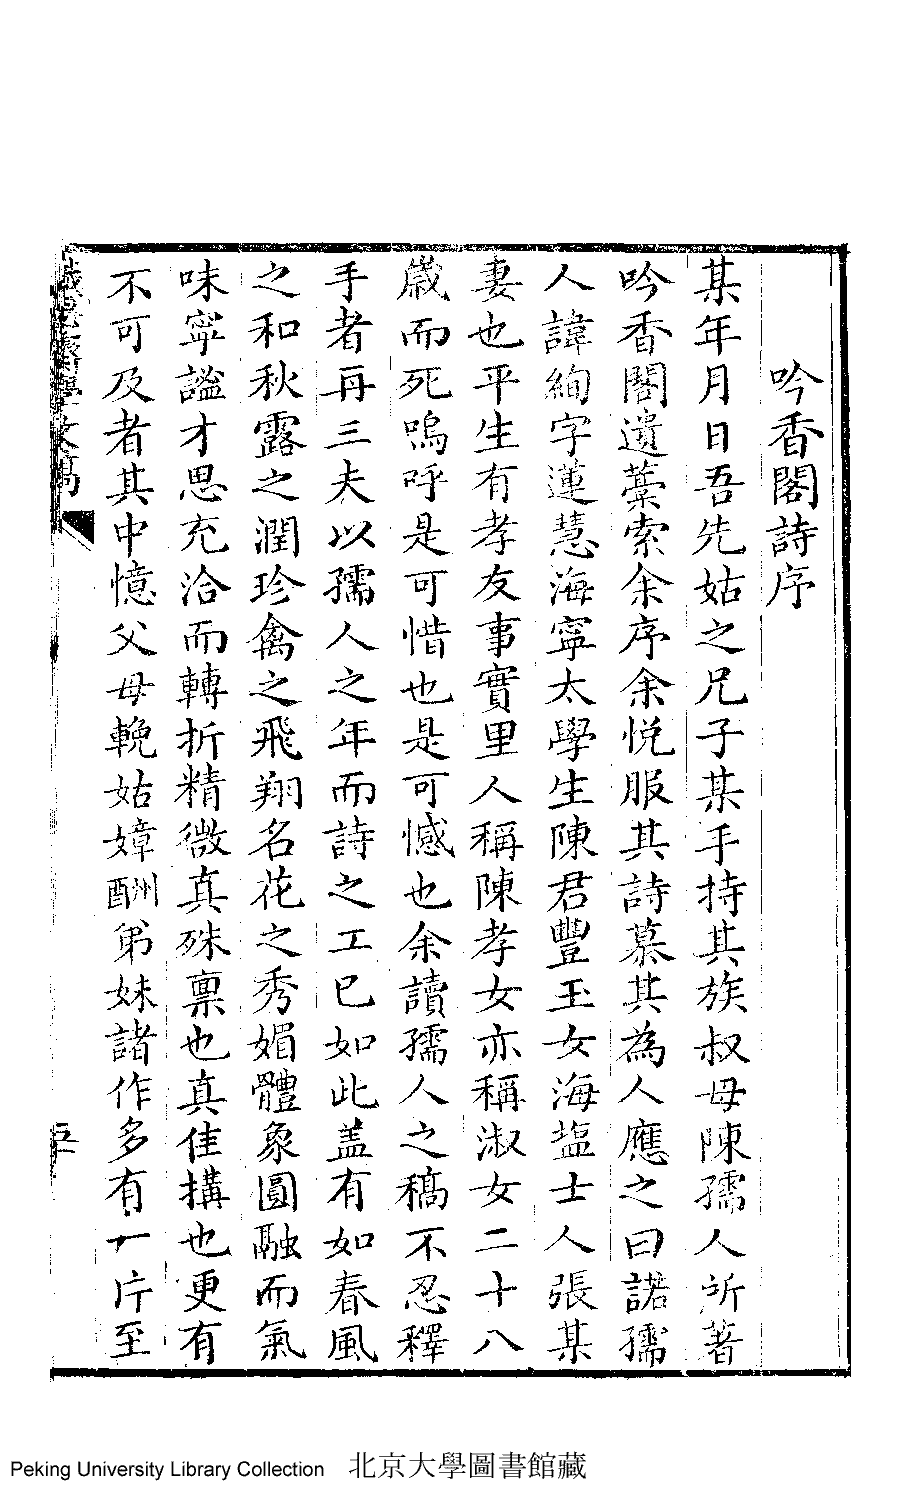 吟香閣詩序
某年月日吾先姑之兄子某手持其族叔母陳孺人所著
吟香閣遺藁索余序余悅服其詩慕其為人應之曰諾孺
人諱絢字蓮慧海寧太學生陳君豐玉女海塩士人張某
妻也平生有孝友事實里人稱陳孝女亦稱淑女二十八
歲而死嗚呼是可惜也是可憾也余讀孺人之稿不忍釋
手者再三夫以孺人之年而詩之工已如此盖有如春風
之和秋露之潤珍禽之飛翔名花之秀媚體象圓融而氣
味寧謐才思充洽而轉折精微真殊稟也真佳搆也更有
不可及者其中憶父母輓姑嫜酬弟妹諸作多有一片至
齋文稿
五
Peking University Library Collection 北京大學圖書館藏